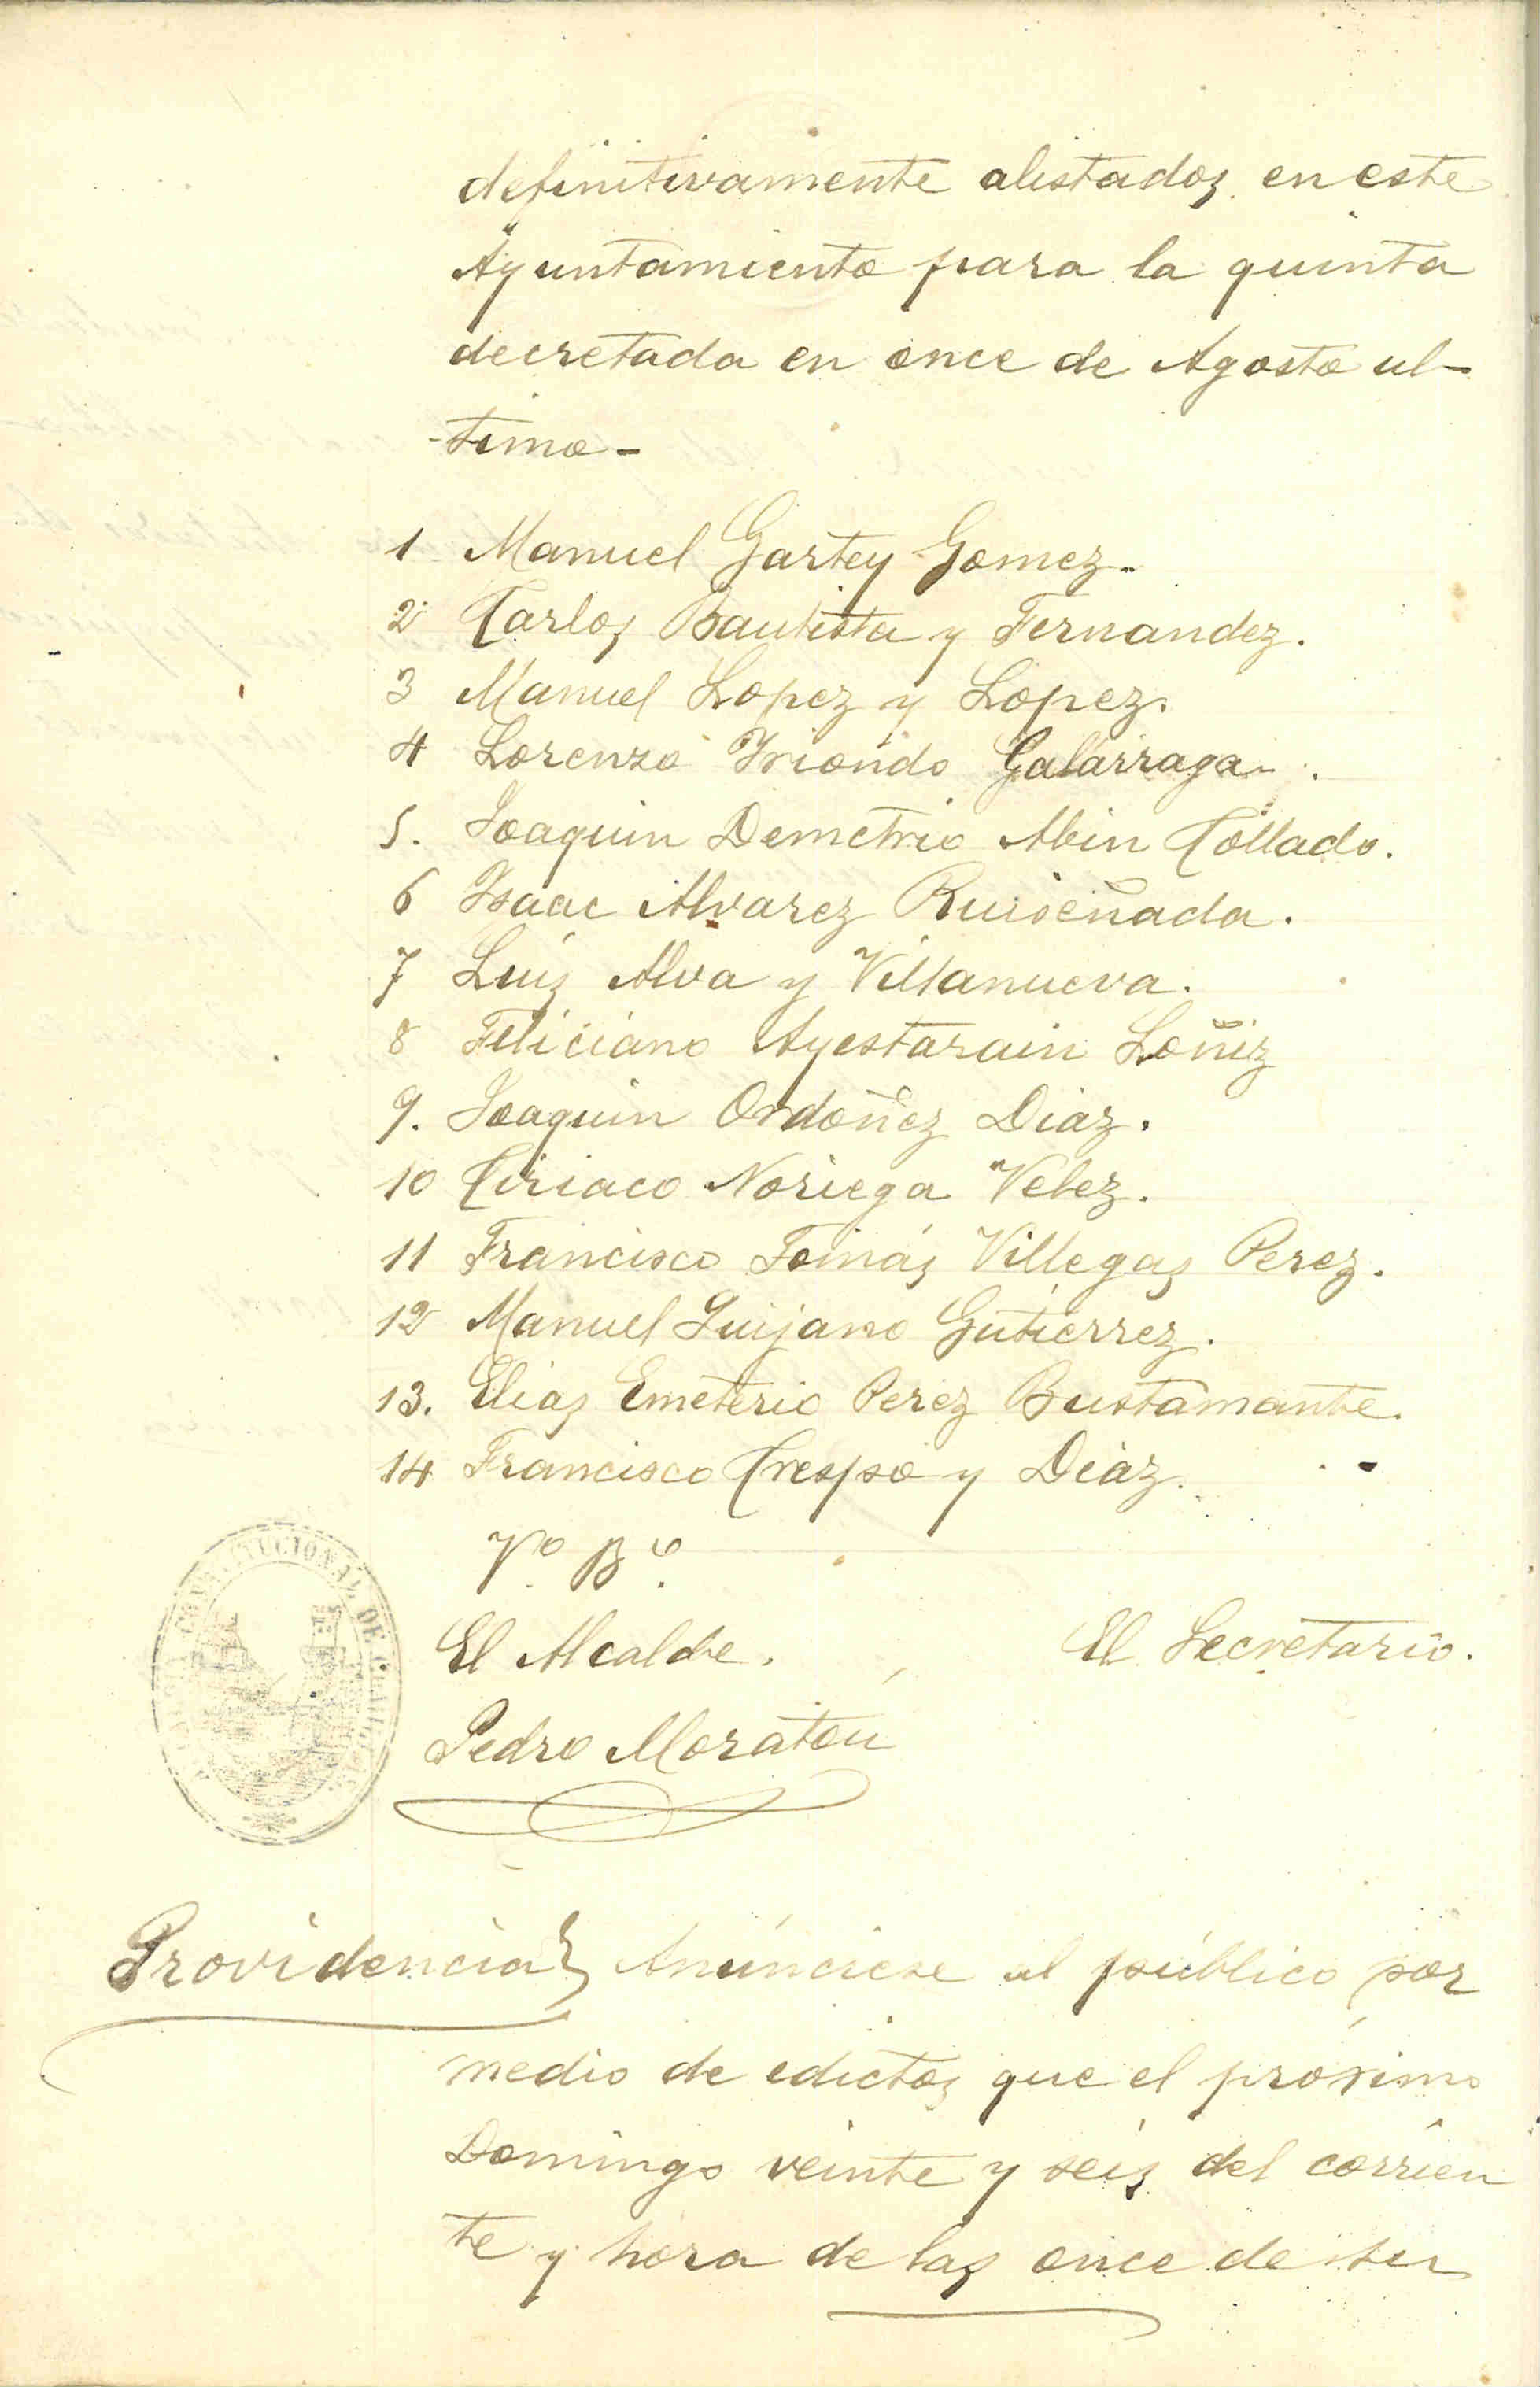 definitivamente alistados en este
Ayuntamiento para la quinta
decretada en once de Agosto ul-
-timo-
1 Manuel Gartey Gomez.
2 Carlos Bautista y Fernandez.
3 Manuel Lopez y Lopez.
4 Lorenzo Yriondo Galarraga.
5. Joaquin Demetrio Abin Collado.
6 Ysaac Alvarez Ruiseñada.
7 Luis Alva y Villanueva.
8 Feliciano Ayestarain Loñiz
9. Joaquin Ordoñez Diaz.
10 Ciriaco Noriega Velez.
11 Francisco Tomás Villegas Perez.
12 Manuel Quijano Gutierrez.
13. Elias Emeterio Perez Bustamante.
14 Francisco Crespo y Diaz.
Vº Bº
El Alcalde. El Secretario.
Pedro Moratou
CONSTITUCIONAL DE
Providencia} Anúnciese al público por
medio de edictos que el próximo
Domingo veinte y seis del corrien
te y hora de las once de su